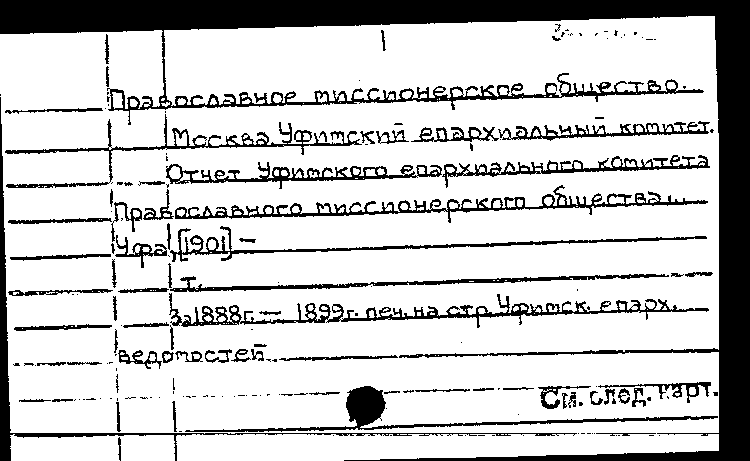 Православное миссионерское общество.
Москва. Уфимский епархиальный комитет.
Отчет Уфимского епархиального комитета
Православного миссионерского общества...
Уфа, [1901] –
т.
За 1888г. — 1899г. печ. на стр. Уфимск. епарх.
ведомостей
См. след. карт.